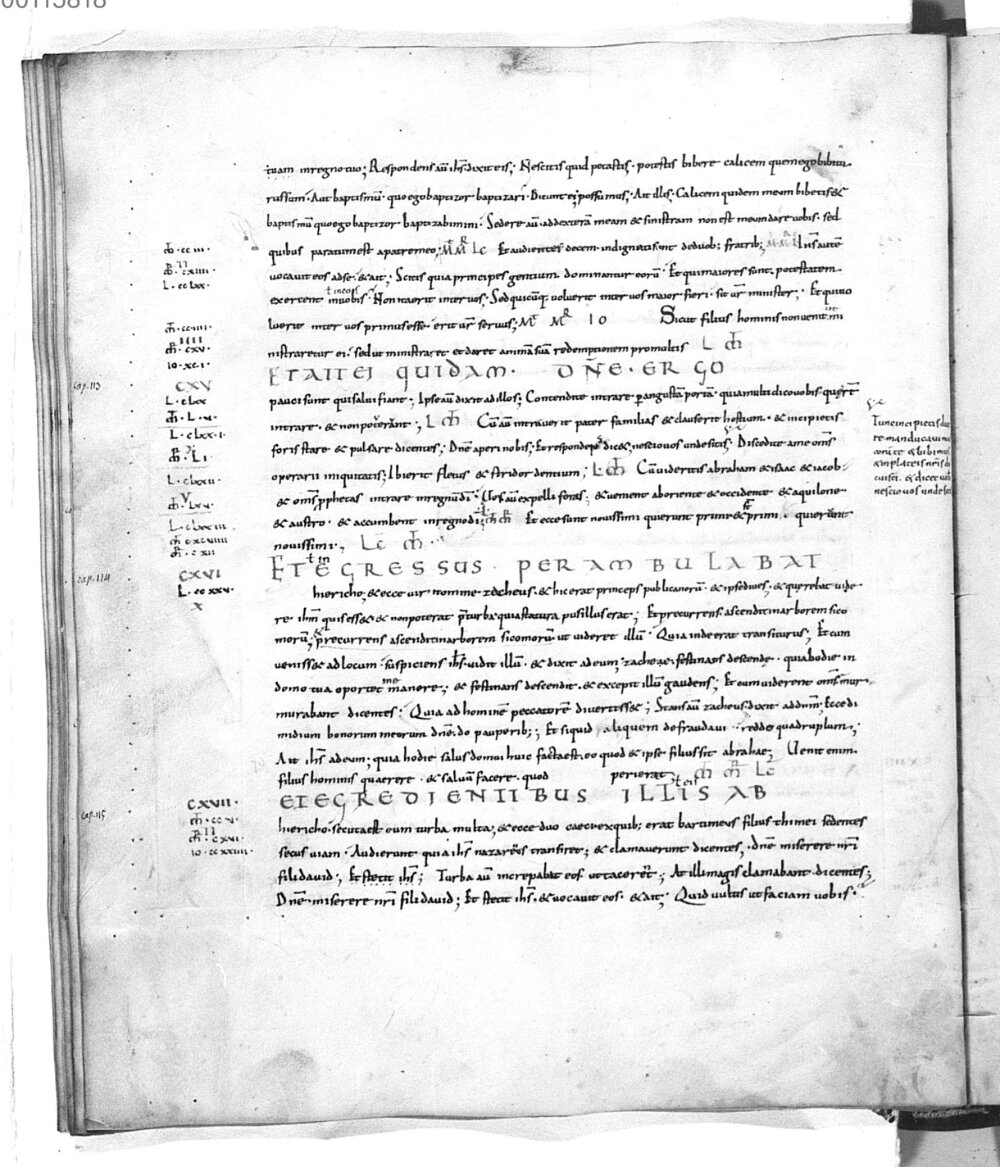 00115818
tuam inregno tuo; Respondens aū ihs dixit eis; Nescitis quid petastis. potestis bibere calicem quem ego bibitu
rus sum. Aut baptismū quo ego baptizor baptizari. Dicunt ei possumus. Ait illis. Calicem quidem meum bibetis &
baptismū quo ego baptizor baptizabimini. Sedere aū addexterā meam & sinistram non est meum dare vobis. sed
quibus paratum est apatre meo; M̄ M̄R LC Et audientes decem indignati sunt de duob; fratrib; ihs autē
m̄. cc iii.
vocavit eos adse. & ait; Scitis quia principes gentium dominantur eorū. Et qui maiores sunt. potestatem
m̄R. cx iiii.
L. cc lxx.
exercent invobis. Non ita erit inter vos; Sed quicūq; voluerit inter vos maior fieri. sit vr̄ minister; Et qui vo
luerit inter vos primus esse. erit vr̄ servus; M̄ M̄R IO Sicut filius hominis non venit mi
m̄. cc iiii.
m̄R. cxv.
nistraretur ei. sed ut ministraret et daret animā suā redemptionem pro multis L m̄
IO. xc. I.
ET AIT EI QUIDAM. DN̄E. ERGO
cap. 113
CXV
pauci sunt qui salui fiant; Ipse aū dixit ad illos; Contendite intrare per angustā portā. quia multi dico vobis. querēt
L. c lxx
intrare. & non poterant; L m̄ Cū aū intraverit pater familias & clauserit hostium. & incipietis
m̄. L. v.
L. c lxx. I.
foris stare & pulsare dicentes; Dn̄e aperi nobis; Et respondens dic&; nescio vos unde sitis; Discedite a me om̄s
m̄. L I.
operarii iniquitatis; Ibi erit fletus & stridor dentium; L. m̄ Cū videritis abraham & isaac & iacob.
L. c lxx ii.
& om̄s prophetas intrare in regnū dī. Vos aū expelli foras; & venient ab oriente & occidente & aquilone
m̄. L x v.
& austro. & accumbent inregno dī; m̄ m̄R Et ecce sunt novissimi qui erunt primi & primi. qui erunt
L. c lxx iii.
novissimi; LC m̄.
m̄R. c xii
ET EGRESSUS. PERAMBULABAT
cap. 114
CXVI
hiericho, & ecce vir nomine zacheus. & hic erat princeps publicanorū. & ipse dives; & querebat vide
L. cc xxv.
X
re ihm̄ quis ess& & non poterat prae turba quia statura pusillus erat; Et precurrens ascendit in arborem sico
morū; precurrens ascendit in arborem sicomorū ut videret illū. Quia inde erat transiturus; Et cum
veniss& ad locum. suspiciens ihs. vidit illū. & dixit ad eum; zachee. festinans descende. quia hodie in
domo tua oportet me manere; & festinans descendit. & excepit illū gaudens; Et cum viderent om̄s mur
murabant dicentes; Quia ad hominē peccatorē divertiss&; Stans aū zacheus. dixit ad dnm̄; Ecce di
midium bonorum meorum dn̄e. do pauperib;; Et siquid aliquem defraudavi. reddo quadruplum;
Ait ihs ad eum; quia hodie salus domui huic facta est. eo quod & ipse filius sit abrahae; Venit enim
filius hominis quaerere. & saluū facere. quod perierat; m̄ m̄R LC
ET EGREDIENTIBUS ILLIS AB
cap. 115
CXVII.
hiericho. secuta est eum turba multa; & ecce duo caeci ex quib; erat bartimeus filius thimei sedentes
m̄. cc v.
m̄R. c xvi.
secus viam. Audierunt quia ihs nazareus transiret; & clamaverunt dicentes; dn̄e miserere nr̄i
IO. cc xxiiii.
fili david; Et stetit ihs; Turba aū increpabat eos ut tacerēt; At illi magis clamabant. dicentes;
Dn̄e. miserere nr̄i fili david; Et stetit ihs. & vocavit eos. & ait; Quid vultis ut faciam vobis.
Tunc incipietis di
re manducavimus
corā te & bibimus
& in plateis nr̄is do
cuisti. & dicet vobis
nescio vos unde sitis